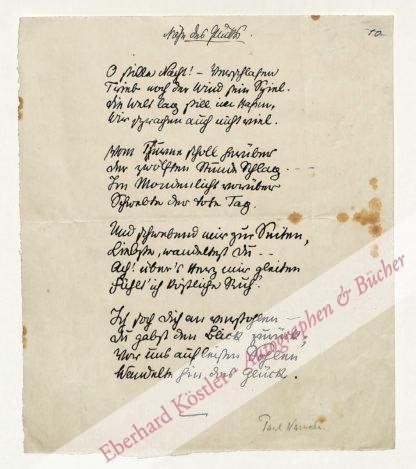 Nähe des Glücks.
10
O stille Nacht! – Verschlafen
Trieb noch der Wind sein Spiel.
Die Welt lag still im Hafen,
Wir sprachen auch nicht viel.
Vom Turme scholl herüber
der zwölften Stunde Schlag. - -
Im Mondenlicht vorüber
Schwebte der tote Tag.
Und schwebend mir zur Seiten,
Liebste, wandeltest Du - -
Ach! über's Herz mir gleiten
Fühlt' ich köstliche Ruh'.
Ich sah Dich an verstohlen –
Du gabst den Blick zurück,
Vor uns auf leisen Sohlen
Wandelte hin das Glück.
Paul Warncke.
Eberhard Köstler - Autographen & Bücher